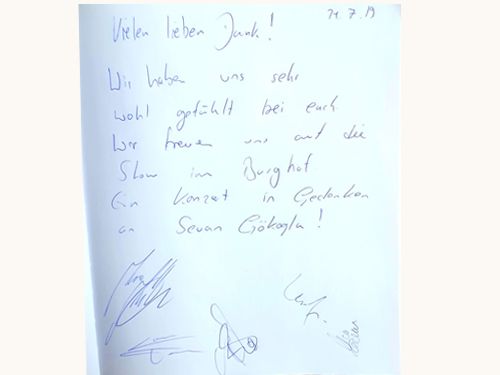 Vielen lieben Dank!
21.7.19
Wir haben uns sehr
wohl gefühlt bei euch
Wir freuen uns auf die
Show im Burghof
Ein Konzert in Gedenken
an Sevan Gökoglu!